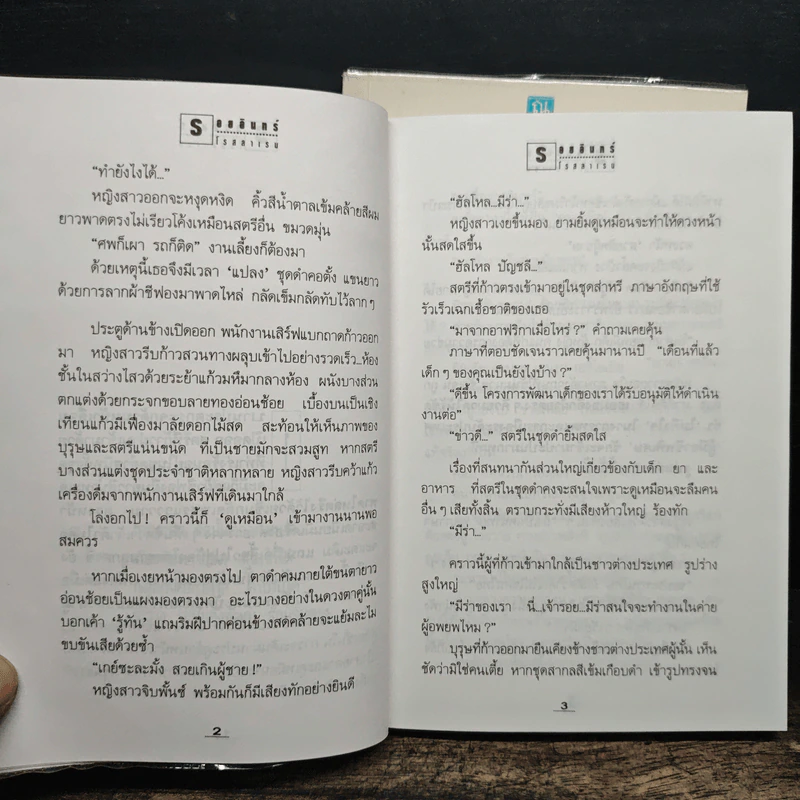 รอยอินทร์
โรสลาเรน
"ทำยังไงได้..."
หญิงสาวออกจะหงุดหงิด คิ้วสีน้ำตาลเข้มคล้ายสีผม
ยาวพาดตรงไม่เรียวโค้งเหมือนสตรีอื่น ขมวดมุ่น
"ศพก็เผา รถก็ติด" งานเลี้ยงก็ต้องมา
ด้วยเหตุนี้เธอจึงมีเวลา 'แปลง' ชุดดำคอตั้ง แขนยาว
ด้วยการลากผ้าชีฟองมาพาดไหล่ กลัดเข็มกลัดทับไว้ลากๆ
ประตูด้านข้างเปิดออก พนักงานเสิร์ฟแบกถาดก้าวออก
มา หญิงสาวรีบก้าวสวนทางผลุบเข้าไปอย่างรวดเร็ว...ห้อง
ชั้นในสว่างไสวด้วยระย้าแก้วมหึมากลางห้อง ผนังบางส่วน
ตกแต่งด้วยกระจกขอบลายทองอ่อนช้อย เบื้องบนเป็นเชิง
เทียนแก้วมีเฟื่องมาลัยดอกไม้สด สะท้อนให้เห็นภาพของ
บุรุษและสตรีแน่นขนัด ที่เป็นชายมักจะสวมสูท หากสตรี
บางส่วนแต่งชุดประจำชาติหลากหลาย หญิงสาวรีบคว้าแก้ว
เครื่องดื่มจากพนักงานเสิร์ฟที่เดินมาใกล้
โล่งอกไป! คราวนี้ก็ 'ดูเหมือน' เข้ามางานนานพอ
สมควร
หากเมื่อเงยหน้ามองตรงไป ตาดำคมภายใต้ขนตายาว
อ่อนช้อยเป็นแผงมองตรงมา อะไรบางอย่างในดวงตาคู่นั้น
บอกเค้า 'รู้ทัน' แถมริมฝีปากค่อนข้างสดคล้ายจะแย้มละไม
ขบขันเสียด้วยซ้ำ
"เกย์ซะละมั้ง สวยเกินผู้ชาย!"
หญิงสาวจิบพั้นซ์ พร้อมกันก็มีเสียงทักอย่างยินดี
2
รอยอินทร์
โรสลาเรน
"ฮัลโหล...มีร่า"
หญิงสาวเงยขึ้นมอง ยามยิ้มดูเหมือนจะทำให้ดวงหน้า
นั้นสดใสขึ้น
"ฮัลโหล ปัญชลี..."
สตรีที่ก้าวตรงเข้ามาอยู่ในชุดส่าหรี ภาษาอังกฤษที่ใช้
รัวเร็วเฉกเชื้อชาติของเธอ
"มาจากอาฟริกาเมื่อไหร่?" คำถามเคยคุ้น
ภาษาที่ตอบชัดเจนราวเคยคุ้นมานานปี "เดือนที่แล้ว
เด็กๆ ของคุณเป็นยังไงบ้าง?"
"ดีขึ้น โครงการพัฒนาเด็กของเราได้รับอนุมัติให้ดำเนิน
งานต่อ"
"ข่าวดี..." สตรีในชุดดำยิ้มสดใส
เรื่องที่สนทนากันส่วนใหญ่เกี่ยวข้องกับเด็ก ยา และ
อาหาร ที่สตรีในชุดดำคงจะสนใจเพราะดูเหมือนจะลืมคน
อื่นๆ เสียทั้งสิ้น ตราบกระทั่งมีเสียงห้าวใหญ่ ร้องทัก
"มีร่า..."
คราวนี้ผู้ที่ก้าวเข้ามาใกล้เป็นชาวต่างประเทศ รูปร่าง
สูงใหญ่
"มีร่าของเรา นี่...เจ้ารอย...มีร่าสนใจจะทำงานในค่าย
ผู้อพยพไหม?"
บุรุษที่ก้าวออกมายืนเคียงข้างชาวต่างประเทศผู้นั้น เห็น
ชัดว่ามิใช่คนเตี้ย หากชุดสากลสีเข้มเกือบดำ เข้ารูปทรงจน
3